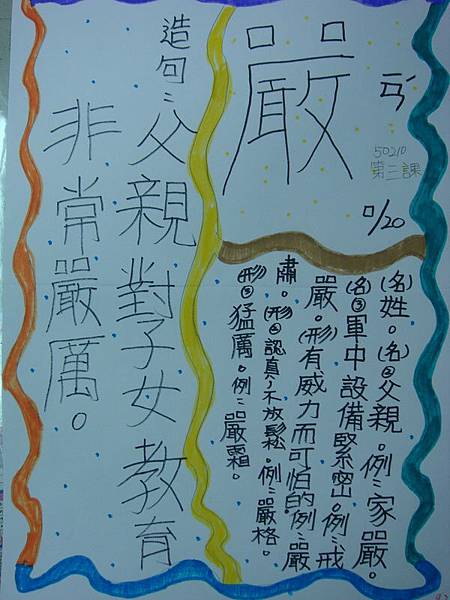 嚴
ㄧㄢˊ
50210
第三課
/20
(名)姓。(名)②父親。例:家嚴。
(名)③軍中設備緊密。例:戒
嚴。(形)有威力而可怕的。例:嚴
肅。(形)②認真,不放鬆。例:嚴格。
(形)③猛厲。例:嚴霜。
造句:父親對子女教育
非常嚴厲。